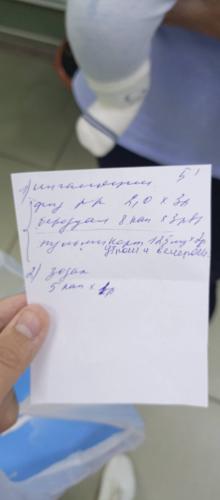 1) ингаляции 5'
физ р-р 2,0 х 3р
беродуал 8 кап х 3р
пульмикорт 125 мг х 2р
утром и вечером
2) зодак
5 кап х 1р